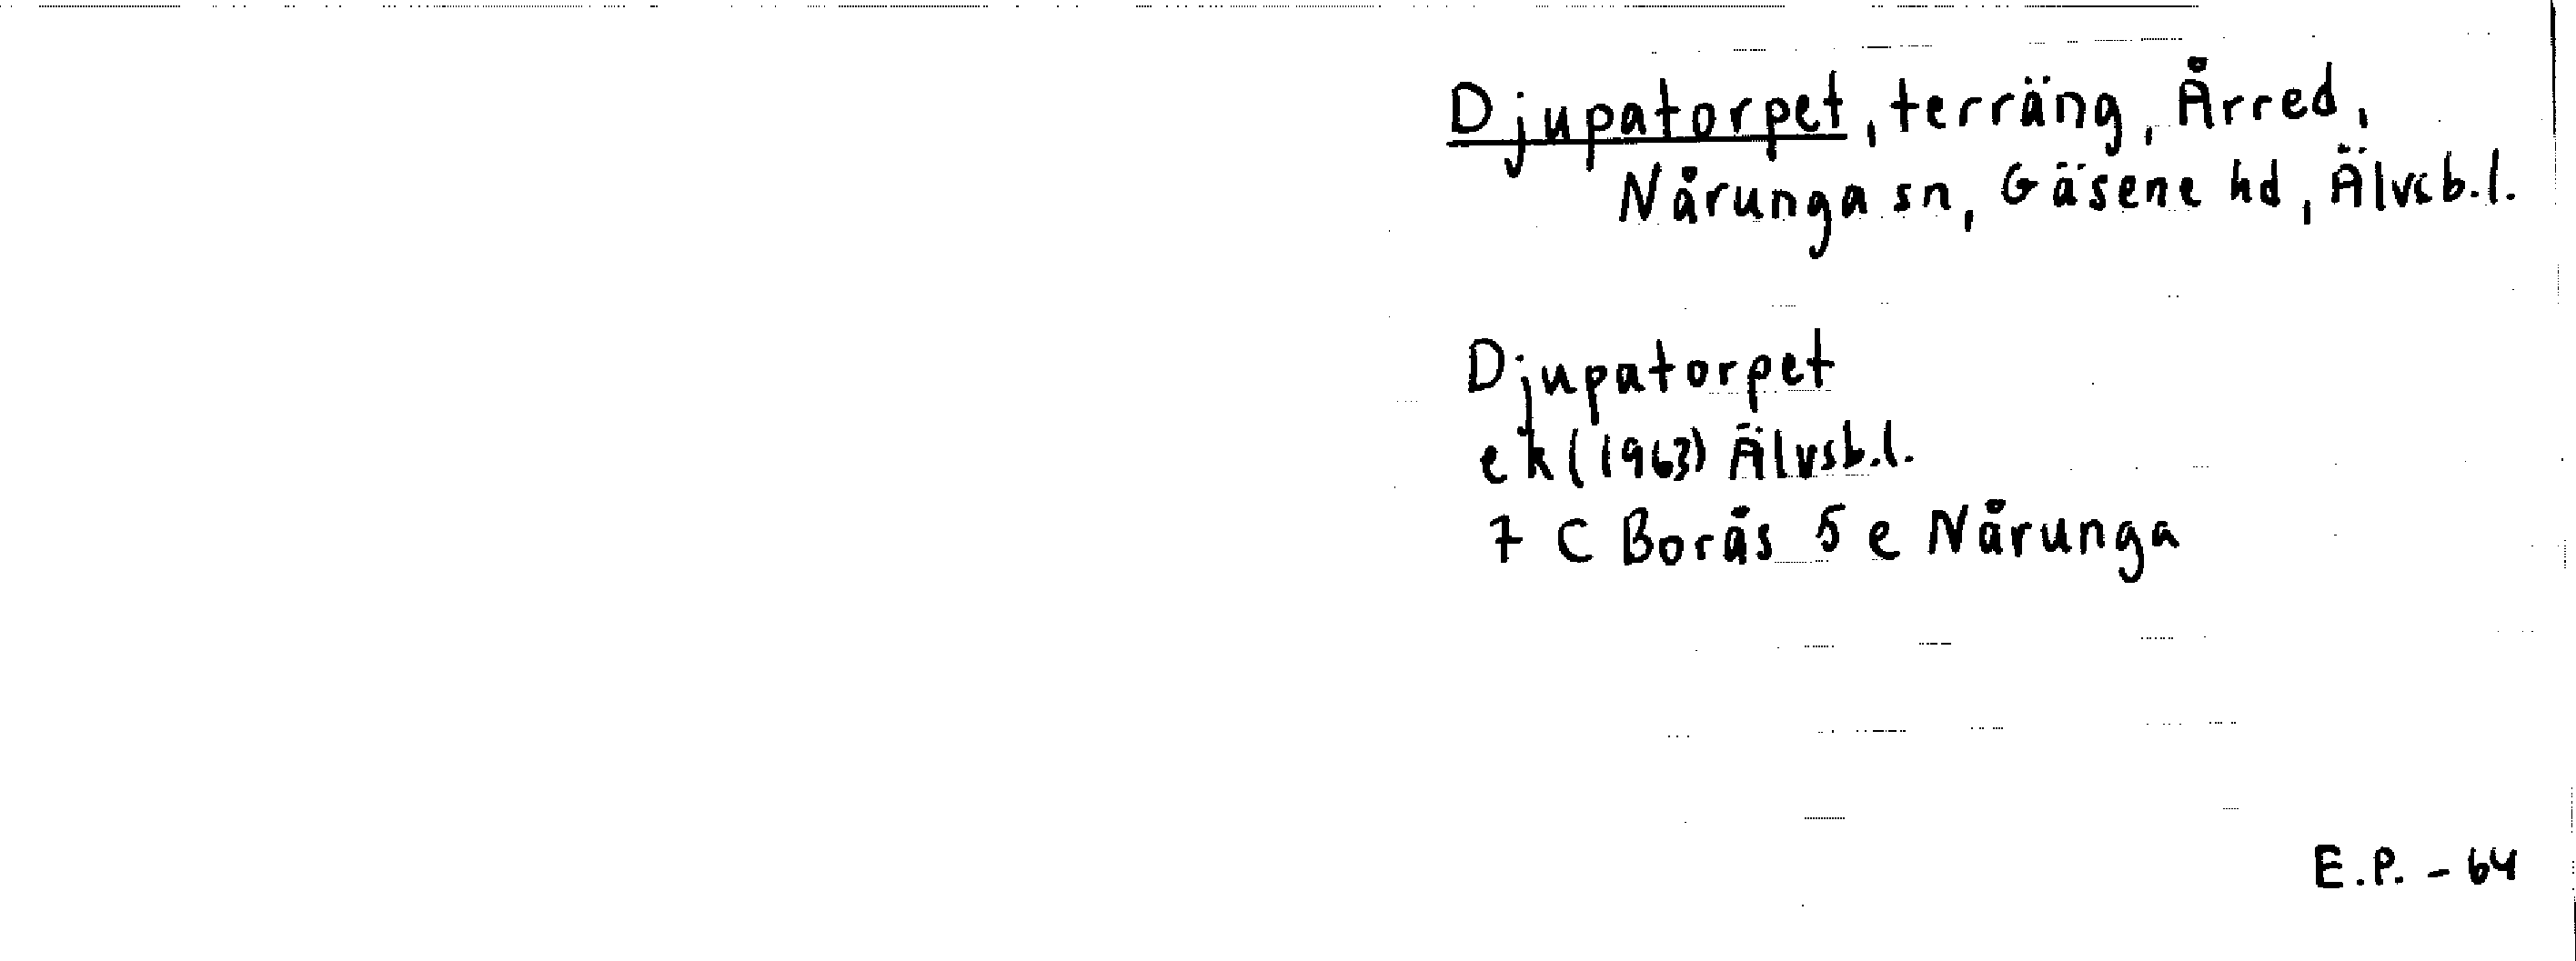 Djupatorpet, terräng, Årred,
Nårunga sn, Gäsene hd, Älvsb.l.
Djupatorpet
ek (1963) Älvsb.l.
7 C Borås 5 e Nårunga
E.P. - 64